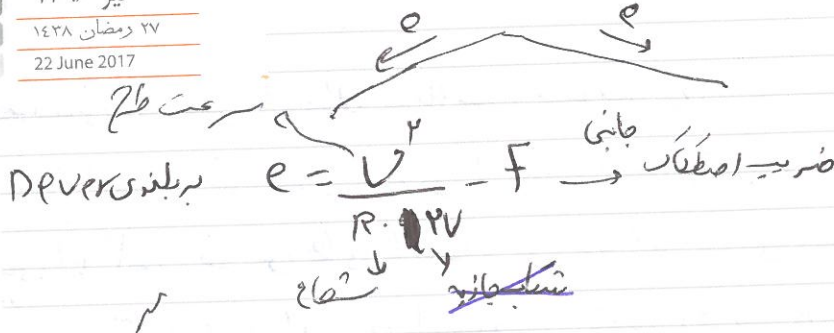 ۲۷ رمضان ۱۴۳۸
22 June 2017
e e
سرعت طرح
بربلندی Dever e = V² / R. ۱۲۷ - F → ضریب اصطکاک جانبی
شعاع شتاب جاذبه